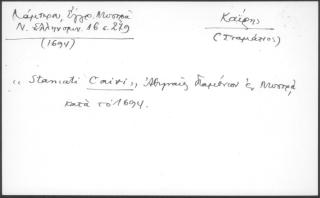 Λάμπρου, Ἔγγρ. Μυστρᾶ
Ν. Ἑλληνομν. 16 σ. 279
(1694)
Καΐρης
(Σταμάτιος)
"Stamati Cairi", Ἀθηναῖος ἐν Μυστρᾷ,
κατὰ τὸ 1694.